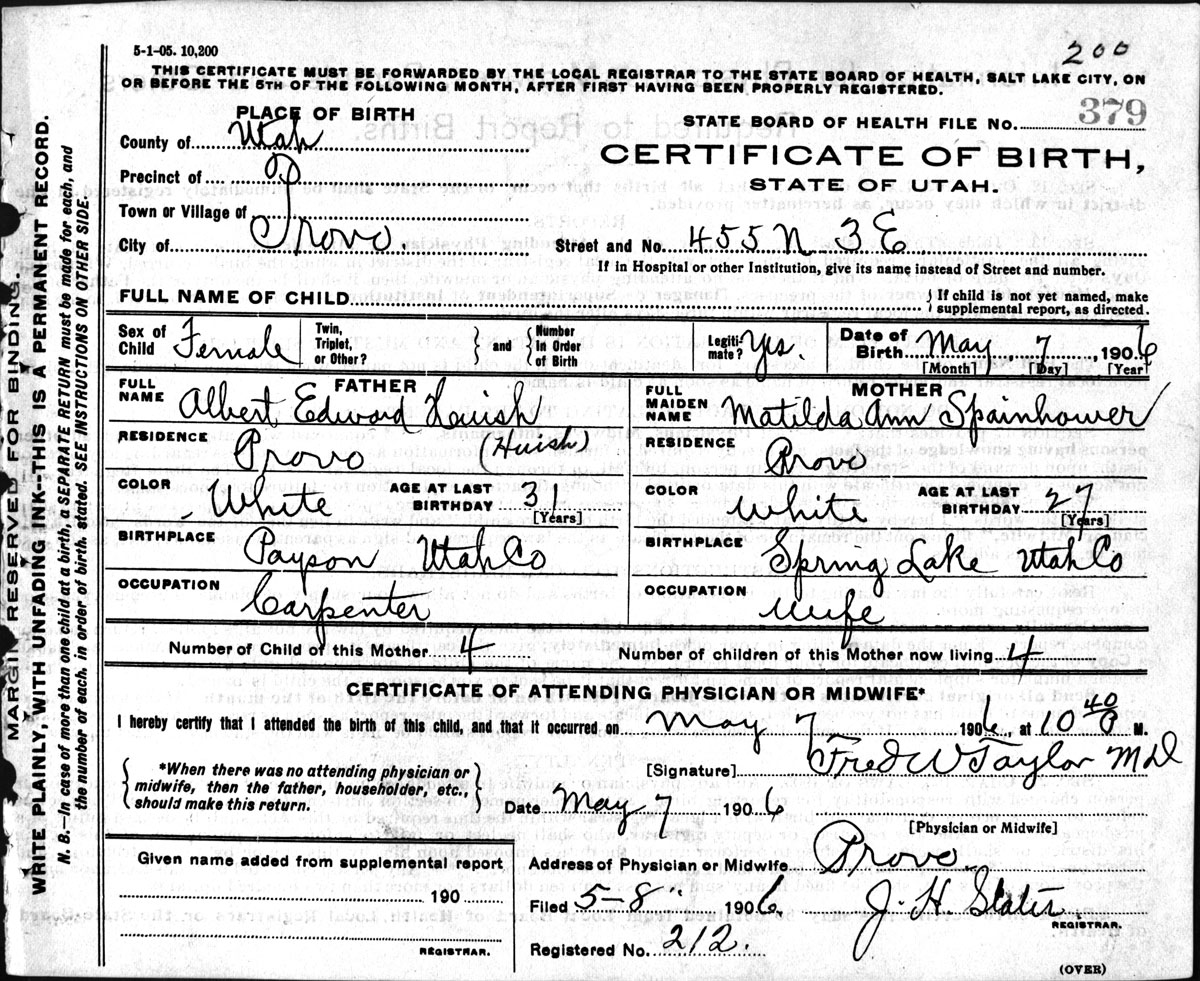 5-1-05. 10,200
200
THIS CERTIFICATE MUST BE FORWARDED BY THE LOCAL REGISTRAR TO THE STATE BOARD OF HEALTH, SALT LAKE CITY, ON
OR BEFORE THE 5TH OF THE FOLLOWING MONTH, AFTER FIRST HAVING BEEN PROPERLY REGISTERED.
PLACE OF BIRTH
County of Utah
Precinct of
Town or Village of
City of Provo
STATE BOARD OF HEALTH FILE No. 379
CERTIFICATE OF BIRTH,
STATE OF UTAH.
Street and No. 455 N 3 E
If in Hospital or other Institution, give its name instead of Street and number.
FULL NAME OF CHILD
If child is not yet named, make
supplemental report, as directed.
Sex of Child Female
Twin, Triplet, or Other?
and
Number in Order of Birth
Legiti-mate? Yes.
Date of Birth May, 7, 1906
[Month] [Day] [Year]
FATHER
FULL NAME Albert Edward Huish
(Huish)
RESIDENCE Provo
COLOR White AGE AT LAST BIRTHDAY 31
[Years]
BIRTHPLACE Payson Utah Co
OCCUPATION Carpenter
MOTHER
FULL MAIDEN NAME Matilda Ann Spainhower
RESIDENCE Provo
COLOR White AGE AT LAST BIRTHDAY 27
[Years]
BIRTHPLACE Spring Lake Utah Co
OCCUPATION Wife
Number of Child of this Mother 4
Number of children of this Mother now living 4
CERTIFICATE OF ATTENDING PHYSICIAN OR MIDWIFE*
I hereby certify that I attended the birth of this child, and that it occurred on May 7 1906, at 10 40 M.
*When there was no attending physician or
midwife, then the father, householder, etc.,
should make this return.
[Signature] Fred W Taylor MD
Date May 7 1906
[Physician or Midwife]
Given name added from supplemental report
190
REGISTRAR.
Address of Physician or Midwife Provo.
Filed 5-8 1906
REGISTRAR.
Registered No. 212.
(OVER)
MARGIN RESERVED FOR BINDING
WRITE PLAINLY, WITH UNFADING INK--THIS IS A PERMANENT RECORD.
N. B.—In case of more than one child at a birth, a SEPARATE RETURN must be made for each, and
the number of each, in order of birth, stated. SEE INSTRUCTIONS ON OTHER SIDE.